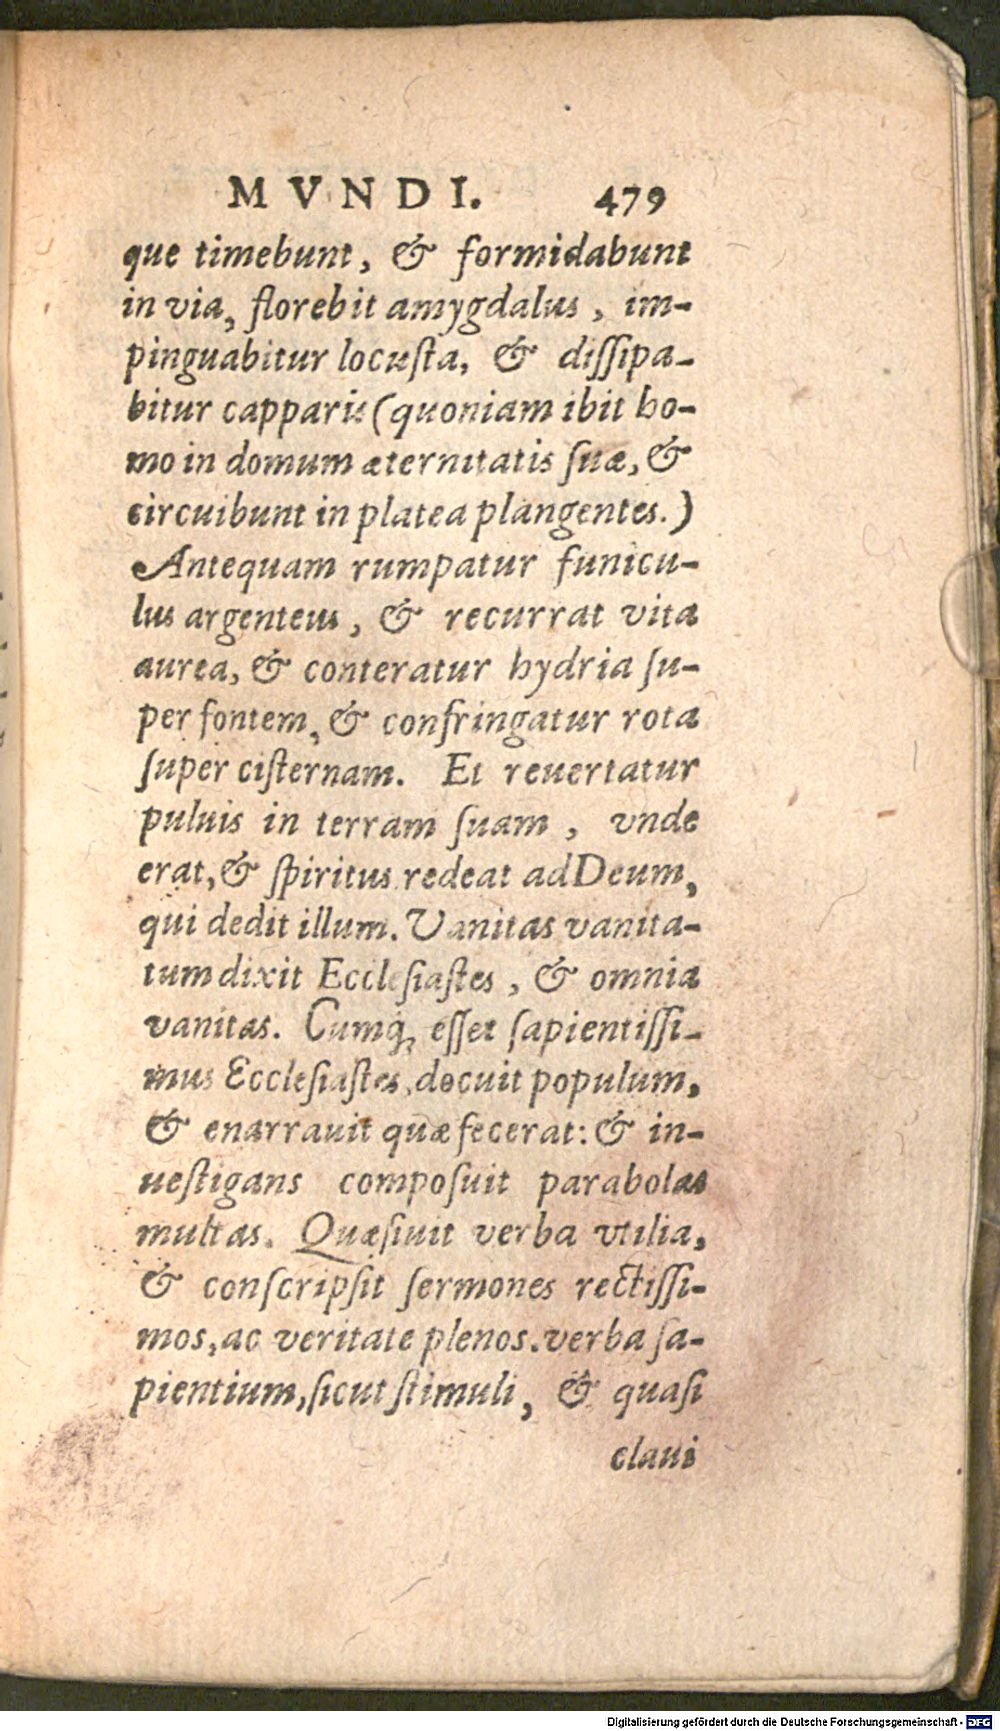 MVNDI. 479
que timebunt, & formidabunt
in via, florebit amygdalus, im-
pinguabitur locuſta, & diſſipa-
bitur capparis (quoniam ibit ho-
mo in domum æternitatis ſuæ, &
circuibunt in platea plangentes.)
Antequam rumpatur funicu-
lus argenteus, & recurrat vita
aurea, & conteratur hydria ſu-
per fontem, & confringatur rota
ſuper ciſternam. Et reuertatur
puluis in terram ſuam, vnde
erat, & ſpiritus redeat ad Deum,
qui dedit illum. Vanitas vanita-
tum dixit Eccleſiaſtes, & omnia
vanitas. Cumq; eſſet ſapientiſſi-
mus Eccleſiaſtes, docuit populum,
& enarrauit quæ fecerat: & in-
ueſtigans compoſuit parabolas
multas. Quæſiuit verba vtilia,
& conſcripſit ſermones rectiſſi-
mos, ac veritate plenos. verba ſa-
pientium, ſicut ſtimuli, & quaſi
claui
Digitalisierung gefördert durch die Deutsche Forschungsgemeinschaft - DFG